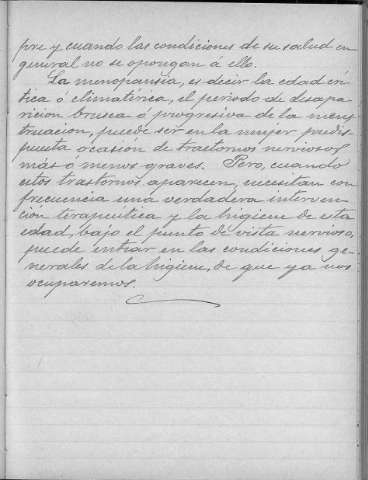 pre y cuando las condiciones de su salud en
general no se opongan á ello.
La menopausia, es decir la edad crí-
tica ó climatérica, el periodo de desapa-
rición brusca ó progresiva de la mens-
truación, puede ser en la mujer predis-
puesta ócasión de trastornos nerviosos
más ó menos graves. Pero, cuando
estos trastornos aparecen, necesitan con
frecuencia una verdadera interven-
ción terapeutica y la higiene de esta
edad, bajo el punto de vista nervioso,
puede entrar en las condiciones ge-
nerales de la higiene, de que ya nos
ocuparemos.